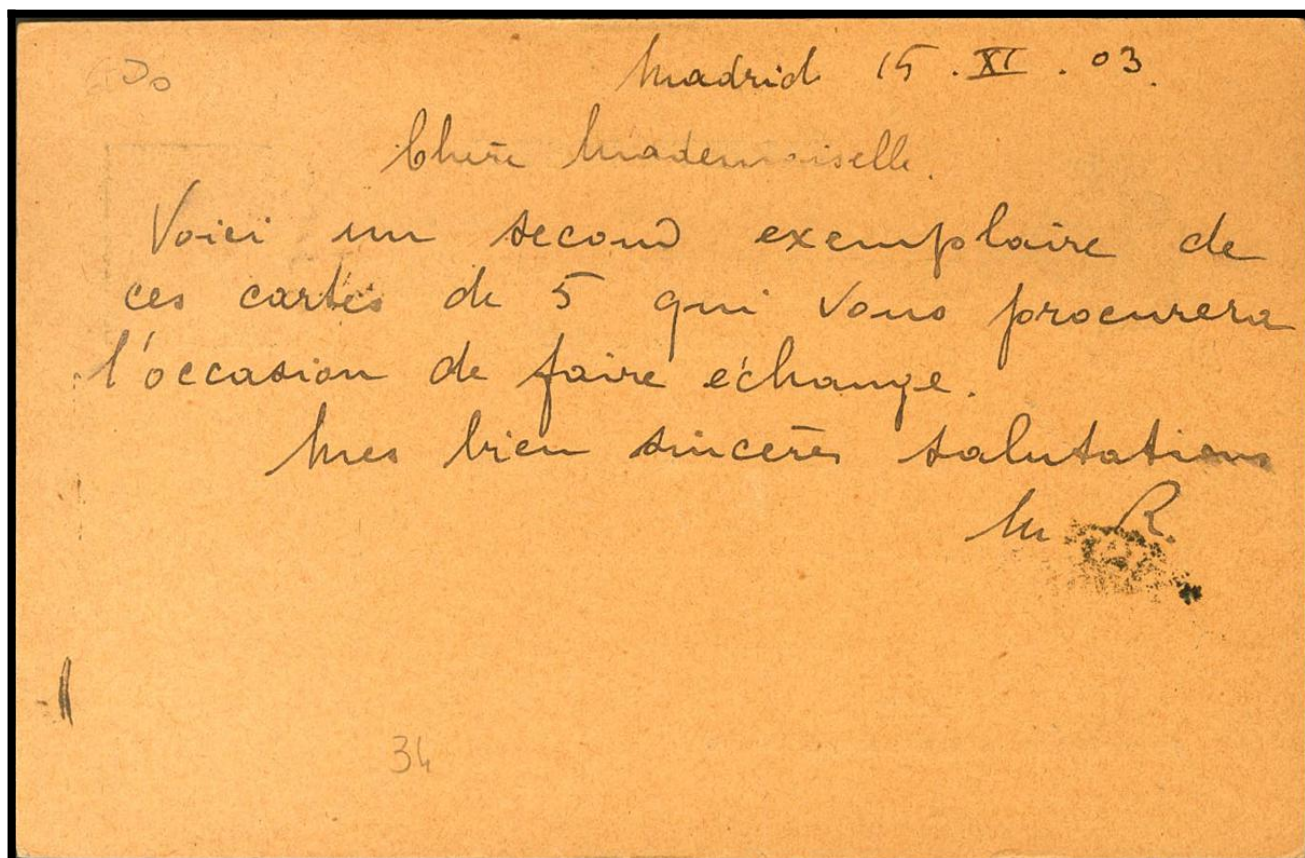 Madrid 15 . XI . 03.
Chère Mademoiselle.
Voici un second exemplaire de
ces cartes de 5 qui vous procurera
l'occasion de faire échange.
Mes bien sincères salutations
M R.
34